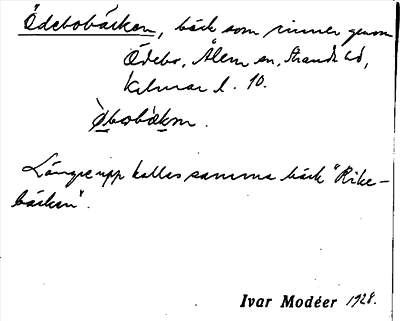 Ödebobäcken, bäck som rinner genom
Ödebo, Ålem sn, Stranda hd,
Kalmar l. 10.
Längre upp kallas samma bäck "Rike-
bäcken".
Ivar Modéer 1928.